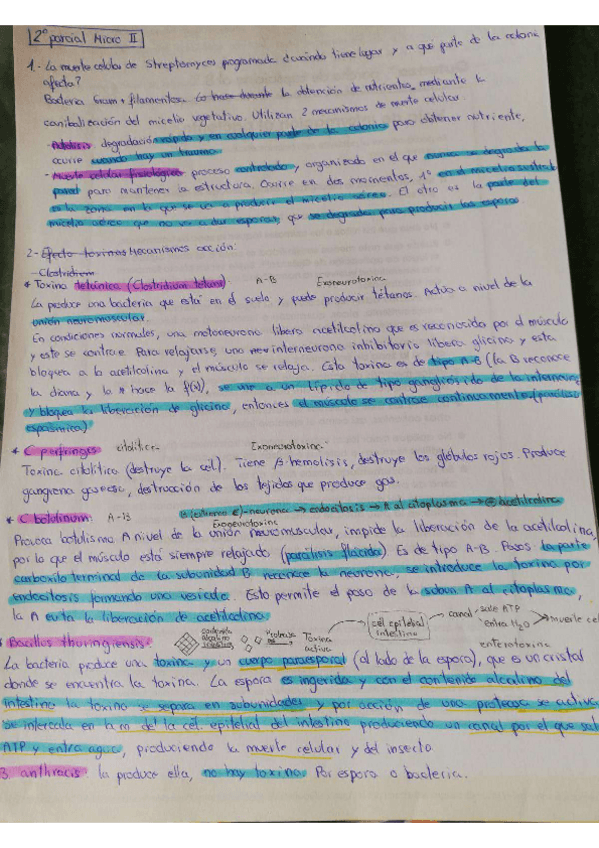 2º parcial Micro II
1.- La muerte celular de Streptomyces programada cuando tiene lugar y a qué parte de la colonia
afecta?
Bacteria Gram + filamentosa. Lo hace durante la detención de nutrientes, mediante la
canibalización del micelio vegetativo. Utilizan 2 mecanismos de muerte celular.
- degradación rápida y en cualquier parte de la colonia para obtener nutriente,
ocurre cuando hay un trauma.
- Muerte celular fisiológica: proceso controlado, organizado en el que nunca se degrada la
pared para mantener la estructura. Ocurre en dos momentos, 1º en el micelio sustrat
es la zona en la que se va a producir el micelio aéreo. El otro es la parte del
micelio aéreo que no va a dar esporas, que se degrada para producir las esporas
2- Efecto toxinas Mecanismos acción:
- Clostridium
* Toxina tetánica (Clostridium tetani) A-B Exoneurotoxina
La produce una bacteria que está en el suelo y puede producir tétanos. Actúa a nivel de la
unión neuromuscular.
En condiciones normales, una motoneurona libera acetilcolina que es reconocida por el músculo
y este se contrae. Para relajarse, una interneurona inhibitoria libera glicina y esta
bloquea a la acetilcolina y el músculo se relaja. Esta toxina es de tipo A-B (la B reconoce
la diana y la A hace la f(x)), se une a un lípido de tipo gangliósido de la interneurona
y bloquea la liberación de glicina, entonces el músculo se contrae continuamente (parálisis
espasmódica)
* C perfringes citolítica Exoneurotoxina
Toxina citolítica (destruye la cel). Tiene β hemolisis, destruye los glóbulos rojos. Produce
gangrena gaseosa, destrucción de los tejidos que produce gas.
* C botulinum: A-B B (extremo C)-neurona → endocitosis → A al citoplasma → ⊖ acetilcolina
Exoneurotoxina
Provoca botulismo. A nivel de la unión neuromuscular, impide la liberación de la acetilcolina,
por lo que el músculo está siempre relajado (parálisis flácida). Es de tipo A-B. Pasos: la parte
carboxilo terminal de la subunidad B reconoce la neurona, se introduce la toxina por
endocitosis formando una vesícula. Esto permite el paso de la subun A al citoplasma,
la A evita la liberación de acetilcolina.
Bacillus thuringiensis: contenido alcalino intestino Proteasa Toxina activa → cél epitelial intestino → canal sale ATP entra H₂O → muerte cel
enterotoxina
La bacteria produce una toxina y un cuerpo paraesporal (al lado de la espora), que es un cristal
donde se encuentra la toxina. La espora es ingerida y con el contenido alcalino del
intestino la toxina se separa en subunidades y por acción de una proteasa se activa
se intercala en la m de la cel. epitelial del intestino produciendo un canal por el que sale
ATP y entra agua, produciendo la muerte celular y del insecto.
B. anthracis la produce ella, no hay toxina. Por espora o bacteria.